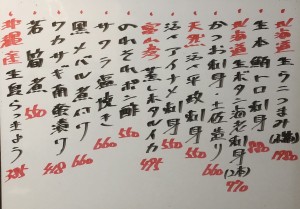 北海道 生ウニつまみ
生本鮪トロ刺身 980
北海道 生ボタン海老刺身(2本) 770
かつお刺身・土佐造り 660
天然 活〆平政刺身 550
活〆アイナメ刺身 550
富山湾 蒸しホタルイカ 495
のれそれポン酢 550
サワラ塩焼き 660
黒メバル煮付け 660
ワカサギ南蛮漬け 480
若筍煮 550
沖縄産 生島らっきょう 385